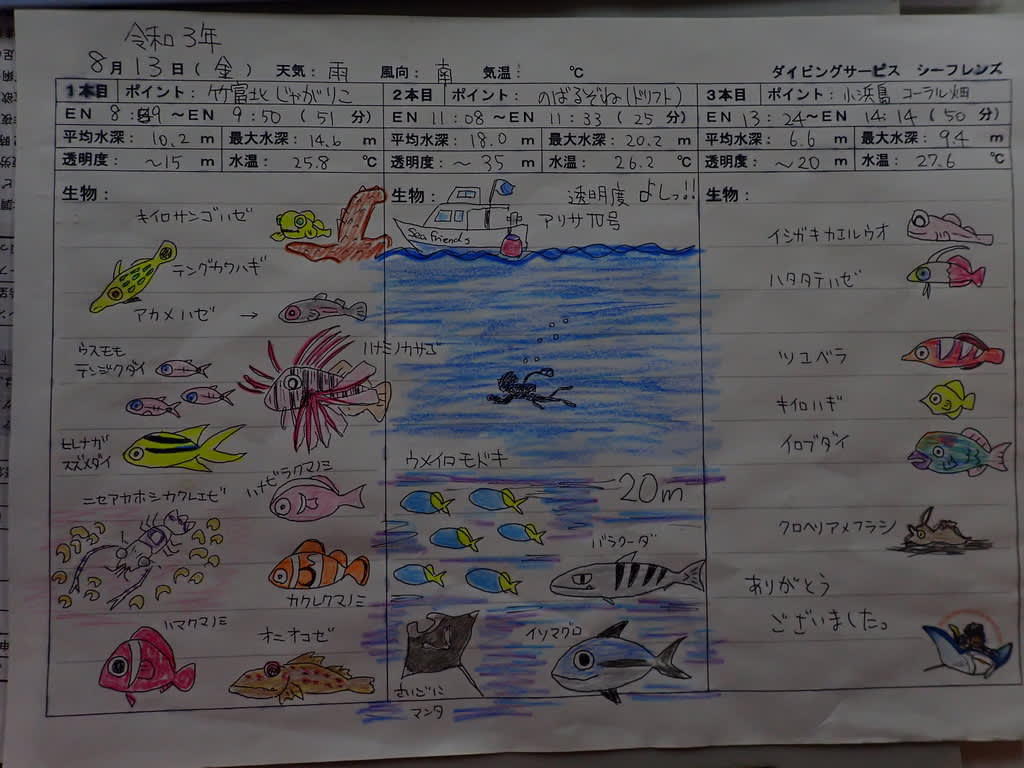 令和3年
8月13日(金) 天気: 雨 風向: 南 気温: ℃ ダイビングサービス シーフレンズ
1本目 ポイント: 竹富北じゃがりこ
EN 8: 59 ~EN 9:50 (51 分)
平均水深: 10.2 m 最大水深: 14.6 m
透明度: ~15 m 水温: 25.8 ℃
生物:
キイロサンゴハゼ
テングカワハギ
アカメハゼ →
ウスモモ
テンジクダイ
ハナミノカサゴ
ヒレナガ
スズメダイ
ハナビラクマノミ
ニセアカホシカクレエビ
カクレクマノミ
ハマクマノミ
オニオコゼ
2本目 ポイント: のばるぞね(ドリフト)
EN 11:08 ~EN 11:33 (25 分)
平均水深: 18.0 m 最大水深: 20.2 m
透明度: ~35 m 水温: 26.2 ℃
生物: 透明度 よしっ!!
アリサIV号
Sea friends
ウメイロモドキ
20m
バラクーダ
イソマグロ
さいごに
マンタ
3本目 ポイント: 小浜島 コーラル畑
EN 13:24~EN 14:14 (50 分)
平均水深: 6.6 m 最大水深: 9.4 m
透明度: ~20 m 水温: 27.6 ℃
生物:
イシガキカエルウオ
ハタタテハゼ
ツユベラ
キイロハギ
イロブダイ
クロヘリアメフラシ
ありがとう
ございました。